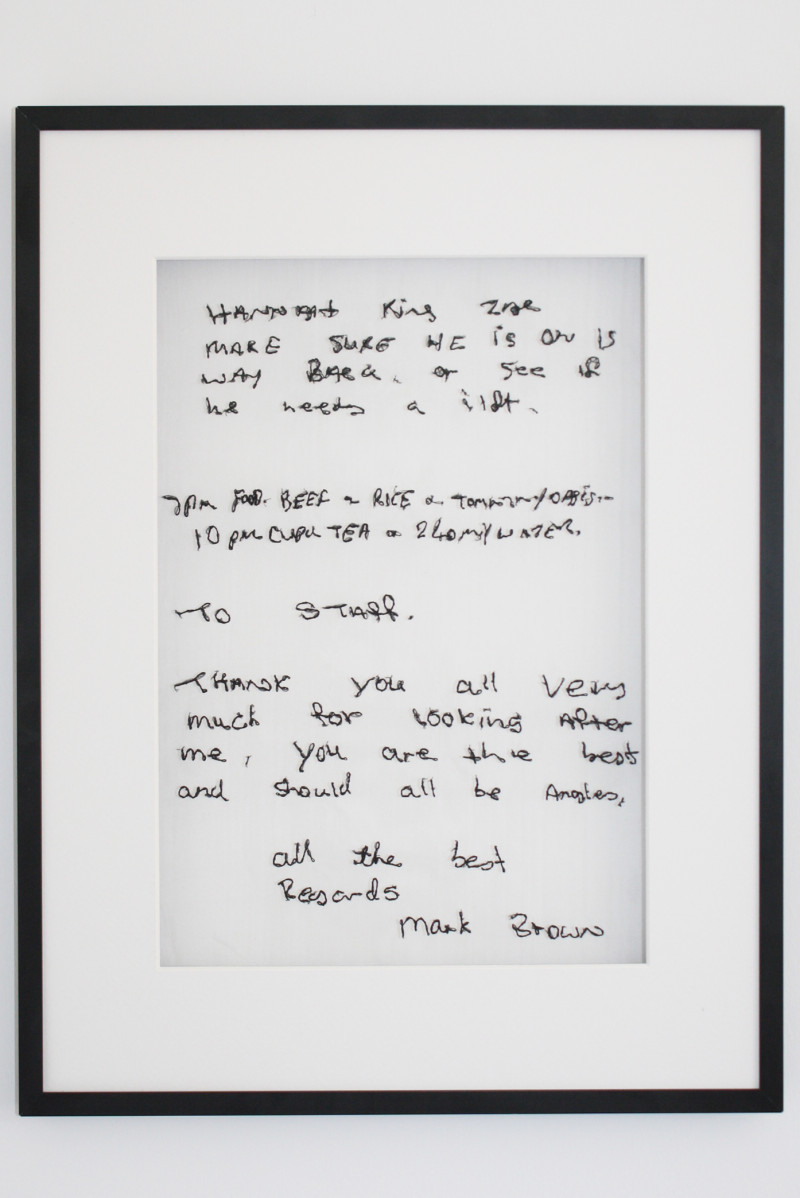 HANNAH King
MAKE SURE HE is ON is
WAY BACK. or See if
he needs a lift.
7pm FOOD. BEEF & RICE &
10 pm CUPU TEA & 240ml WATER.
TO STAFF.
THANK you all Very
much for looking After
me, you are the best
and should all be Angles,
all the best
Regards
Mark Brown